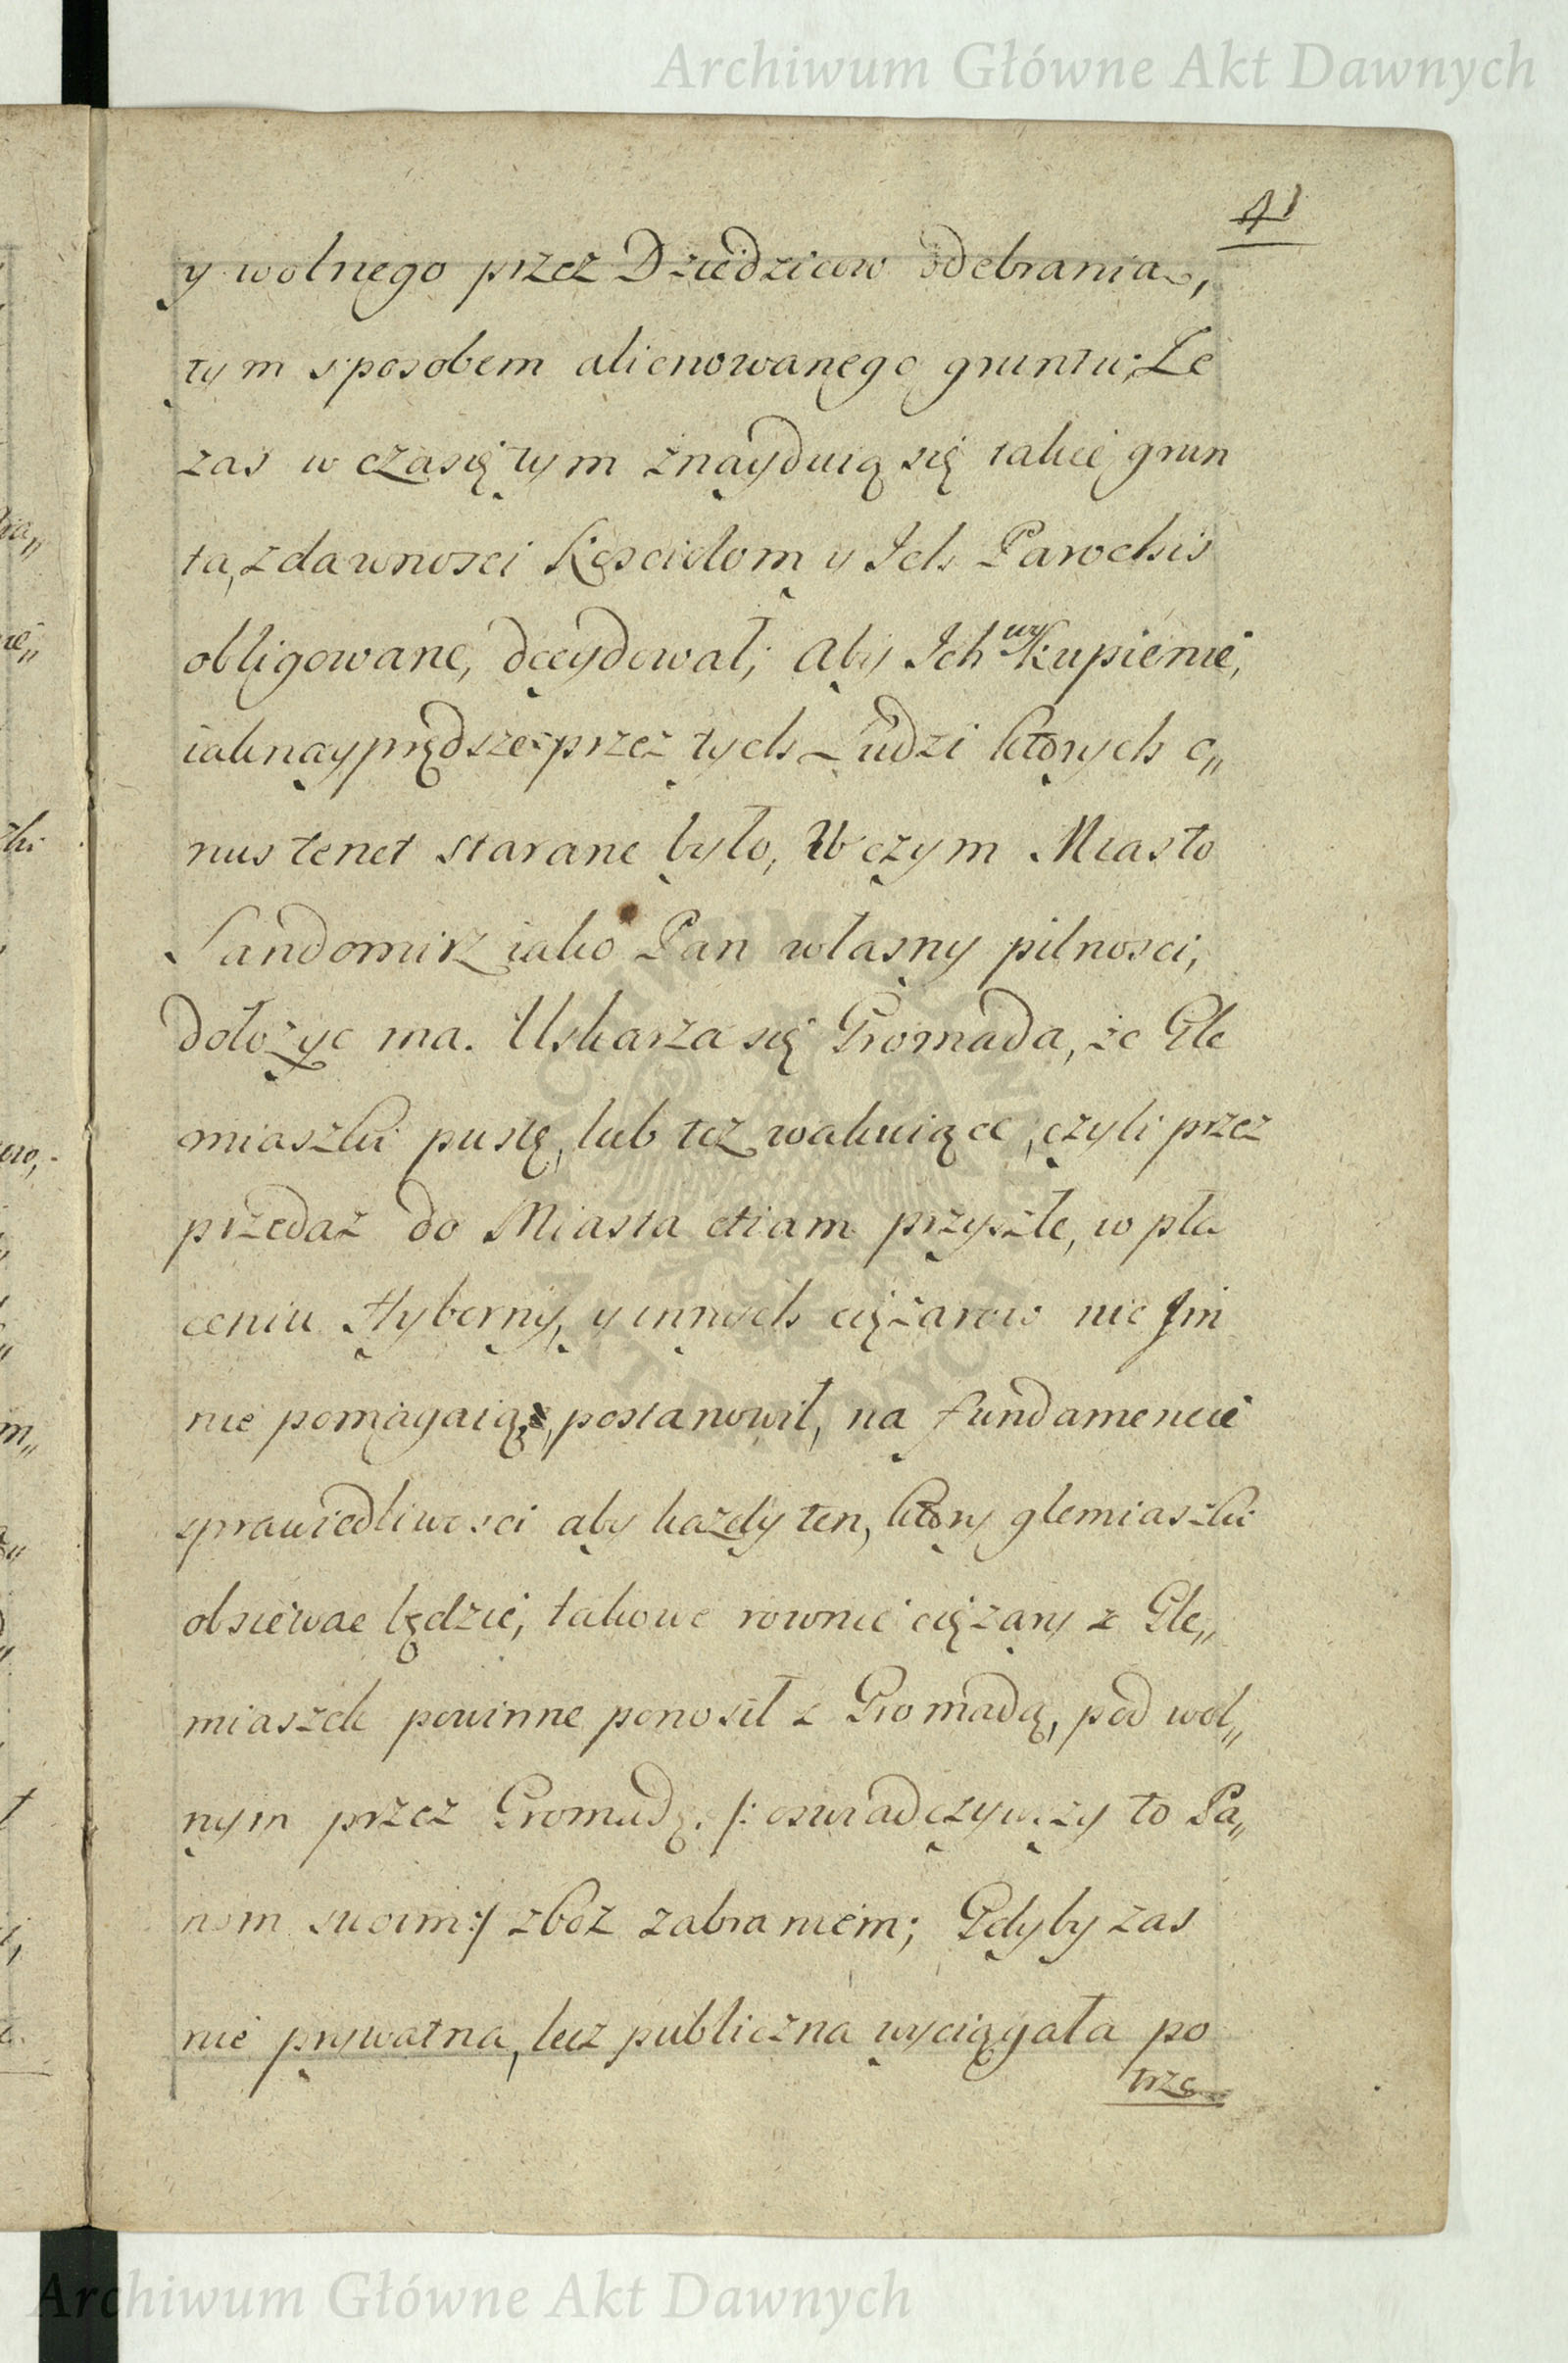 Archiwum Główne Akt Dawnych
41
y wolnego przez Dziedzicow odebrania,
tym sposobem alienowanego gruntu; Ze
zas w czasię tym znayduią się takie grun
ta, z dawnosci Kosciołom y Ich Parochis
obligowane, decydował; aby Ich wykupienie,
iak nayprędsze przez tych Ludzi ktorych o„
nus tenet starane było, W czym Miasto
Sandomirz iako Pan własny pilnosci,
dołozyc ma. Uskarza się Gromada, ze Gle
miaszki pustę, lub tez wakuiące, czyli przez
przedaz do Miasta etiam przyszłe, w pła
ceniu Hyberny, y innych cięzarow nic Im
nie pomagaią, postanowił, na fundamencie
sprawiedliwosci aby kazdy ten, ktory glemiaszki
obsiewac będzie, takowe rownie cięzary z Gle„
miaszek powinne ponosił z Gromadą, pod wol„
nym przez Gromadę. /: oswiadczywszy to Pa„
nom swoim :/ zboz zabraniem; Gdyby zas
nie prywatna, lecz publiczna wyciągała po
trze
Archiwum Główne Akt Dawnych